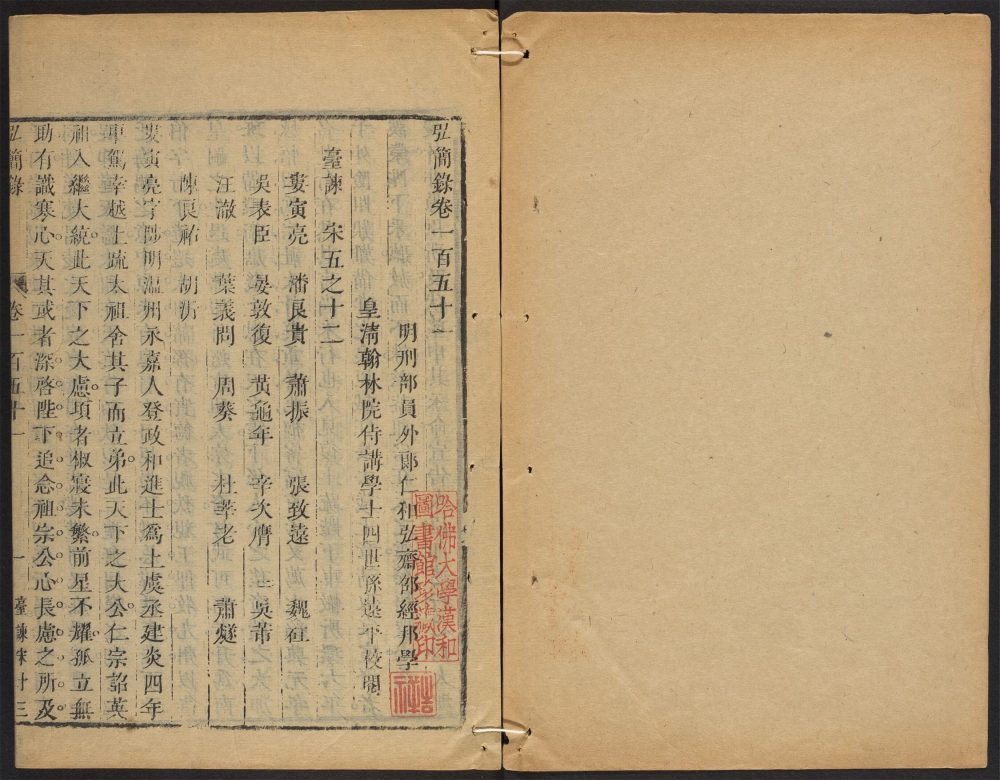 弘簡錄卷一百五十一
明刑部員外郎仁和弘齋邵經邦學
皇淸翰林院侍講學士四世孫遠平校閱
臺諫 宋五之十二
婁寅亮 潘良貴 蕭振 張致遠 魏矼
吳表臣 晏敦復 黃龜年 辛次膺 吳芾
汪澈 葉義問 周葵 杜莘老 蕭燧
陳良祐 胡沂
婁寅亮字陟明溫州永嘉人登政和進士爲上虞丞建炎四年
車駕幸越上疏太祖舍其子而立弟此天下之大公仁宗詔英
祖入繼大統此天下之大慮項者椒寢未繁前星不耀孤立無
助有識寒心天其或者深啓陛下追念祖宗公心長慮之所及
弘簡錄 卷一百五十一 一 臺諫宋廿三
哈佛大學漢和
圖書館珍藏印